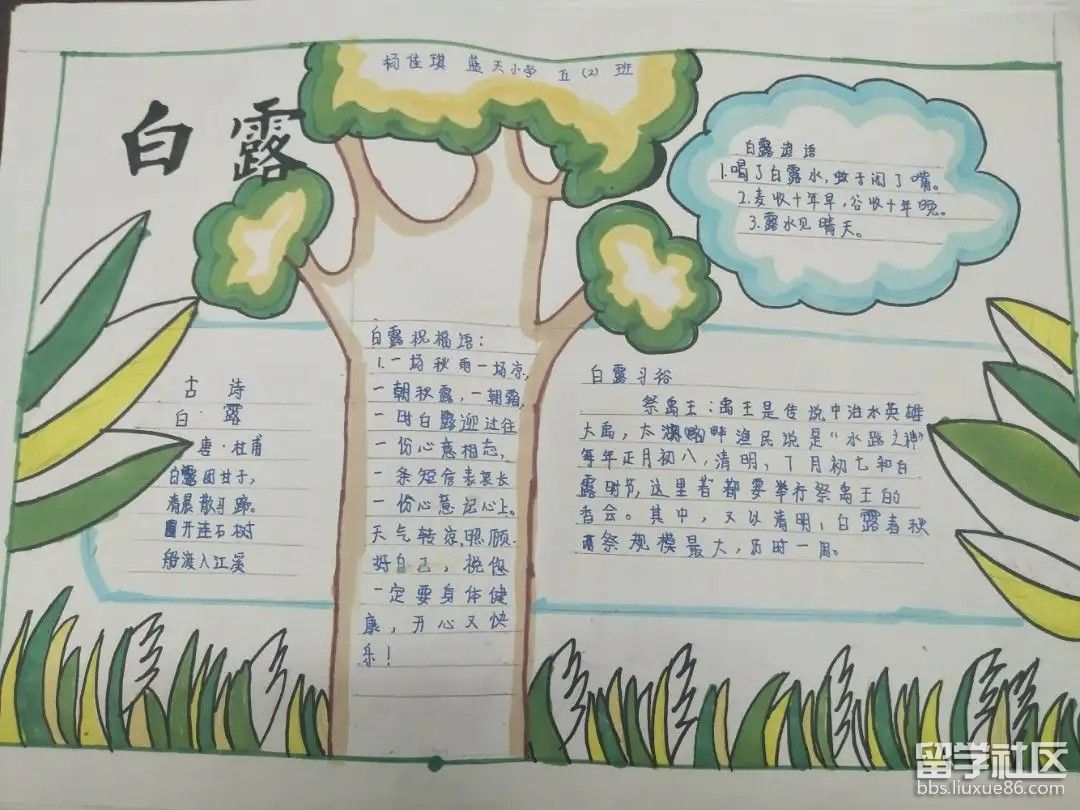 杨佳琪 蓝天小学 五(2)班
白露
白露谚语
1.喝了白露水,蚊子闭了嘴。
2.麦收十年早,谷收十年晚。
3.露水见晴天。
古诗
白·露
唐·杜甫
白露团甘子,
清晨散马蹄。
圃开连石树
船渡入江溪
白露祝福语:
1.一场秋雨一场凉,
一朝秋露,一朝霜,
一时白露迎过往
一份心意相忘,
一条短信表衷长
一份心意记心上。
天气转凉,照顾
好自己,祝您
一定要身体健
康,开心又快
乐!
白露习俗
祭禹王:禹王是传说中治水英雄
大禹,太湖畔渔民说是“水路之神”
每年正月初八,清明,7月初七和白
露时节,这里者都要举行祭禹王的
香会。其中,又以清明,白露春秋
两祭规模最大,历时一周。
留学社区
bbs.liuxue86.com